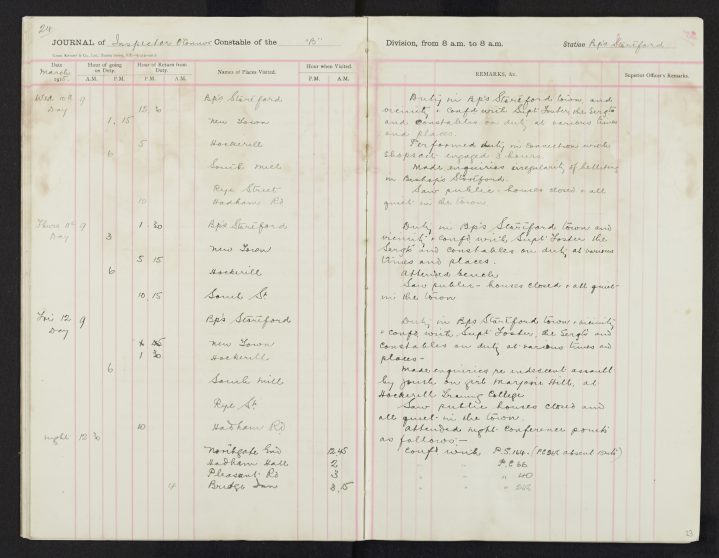 24
JOURNAL of Inspector O'Connor Constable of the "B"
Date March 1915
Hour of going on Duty. A.M. P.M.
Hour of Return from Duty. P.M. A.M.
Names of Places Visited.
Hour when Visited. P.M. A.M.
Wed 10th 9 Bp's Startford
Day 12. 30
1. 15 New Town
5 Hockerill
6
South Mill
Rye Street
10 Hadham Rd
Thurs 11th 9 1. 30 Bps Startford
Day 3
New Town
5 15
6 Hockerill
10. 15 South St
Fri 12 9 Bp's Startford
Day
New Town
1 30 Hockerill
6
South Mill
Rye St.
10 Hadham Rd
night 12 30
Northgate End 12.45
Hadham Hall 2
Pleasant Rd 3
4 Bridge Inn 3.15
Division, from 8 a.m. to 8 a.m. Station Bp's Startford
REMARKS, &c. Superior Officer's Remarks.
Duty in Bp's Startford town and
vicinity & conf'd with Supt Foster, the Sergts
and constables on duty at various times
and places.
Performed duty in connection with
Shops act engaged 3 hours.
Made enquiries irregularity of
in Bishops Stortford.
Saw public-houses closed & all
quiet in the town
Duty in Bp's Startford town and
vicinity & conf'd with Supt Foster the
Sergts and constables on duty at various
times and places.
Attended bench
Saw public-houses closed & all quiet
in the town
Duty in Bps Startford town & vicinity
& conf'd with Supt Foster, the Sergts and
constables on duty at various times and
places-
Made enquiries re indecent assault
by youth on girl Marjorie Hill, at
Hockerill Training College
Saw public houses closed and
all quiet in the town
Attended night Conference points
as follows:-
Conf'd with P.S. 164. absent
" " P.C 66
" " " 40
" " "
23